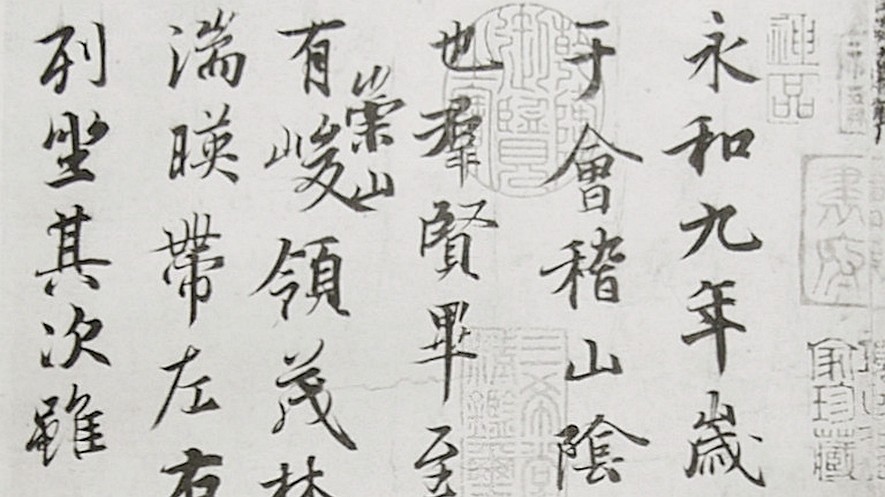 永和九年歲
于會稽山陰
也羣賢畢至
有崇山峻領茂林
湍暎帶左右
列坐其次雖
神品